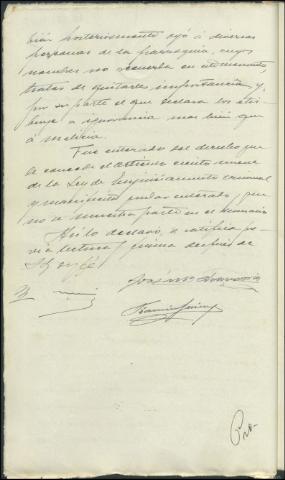 bién posteriormente oyó á diversas
personas de la parroquia, cuyos
nombres no recuerda en este momento,
tratar de quitarles importancia y
por su parte el que declara los atri-
buye a ignorancia mas bien que
á malicia.
Fue enterado del derecho que
le concede el artículo ciento nueve
de la Ley de Enjuiciamiento criminal
y manifestó quedar enterado, que
no se muestra parte en el sumario
Así lo declaró, se ratifica pre-
via lectura y firma despues de
S.S. doy fé.
José Mª
Pro-